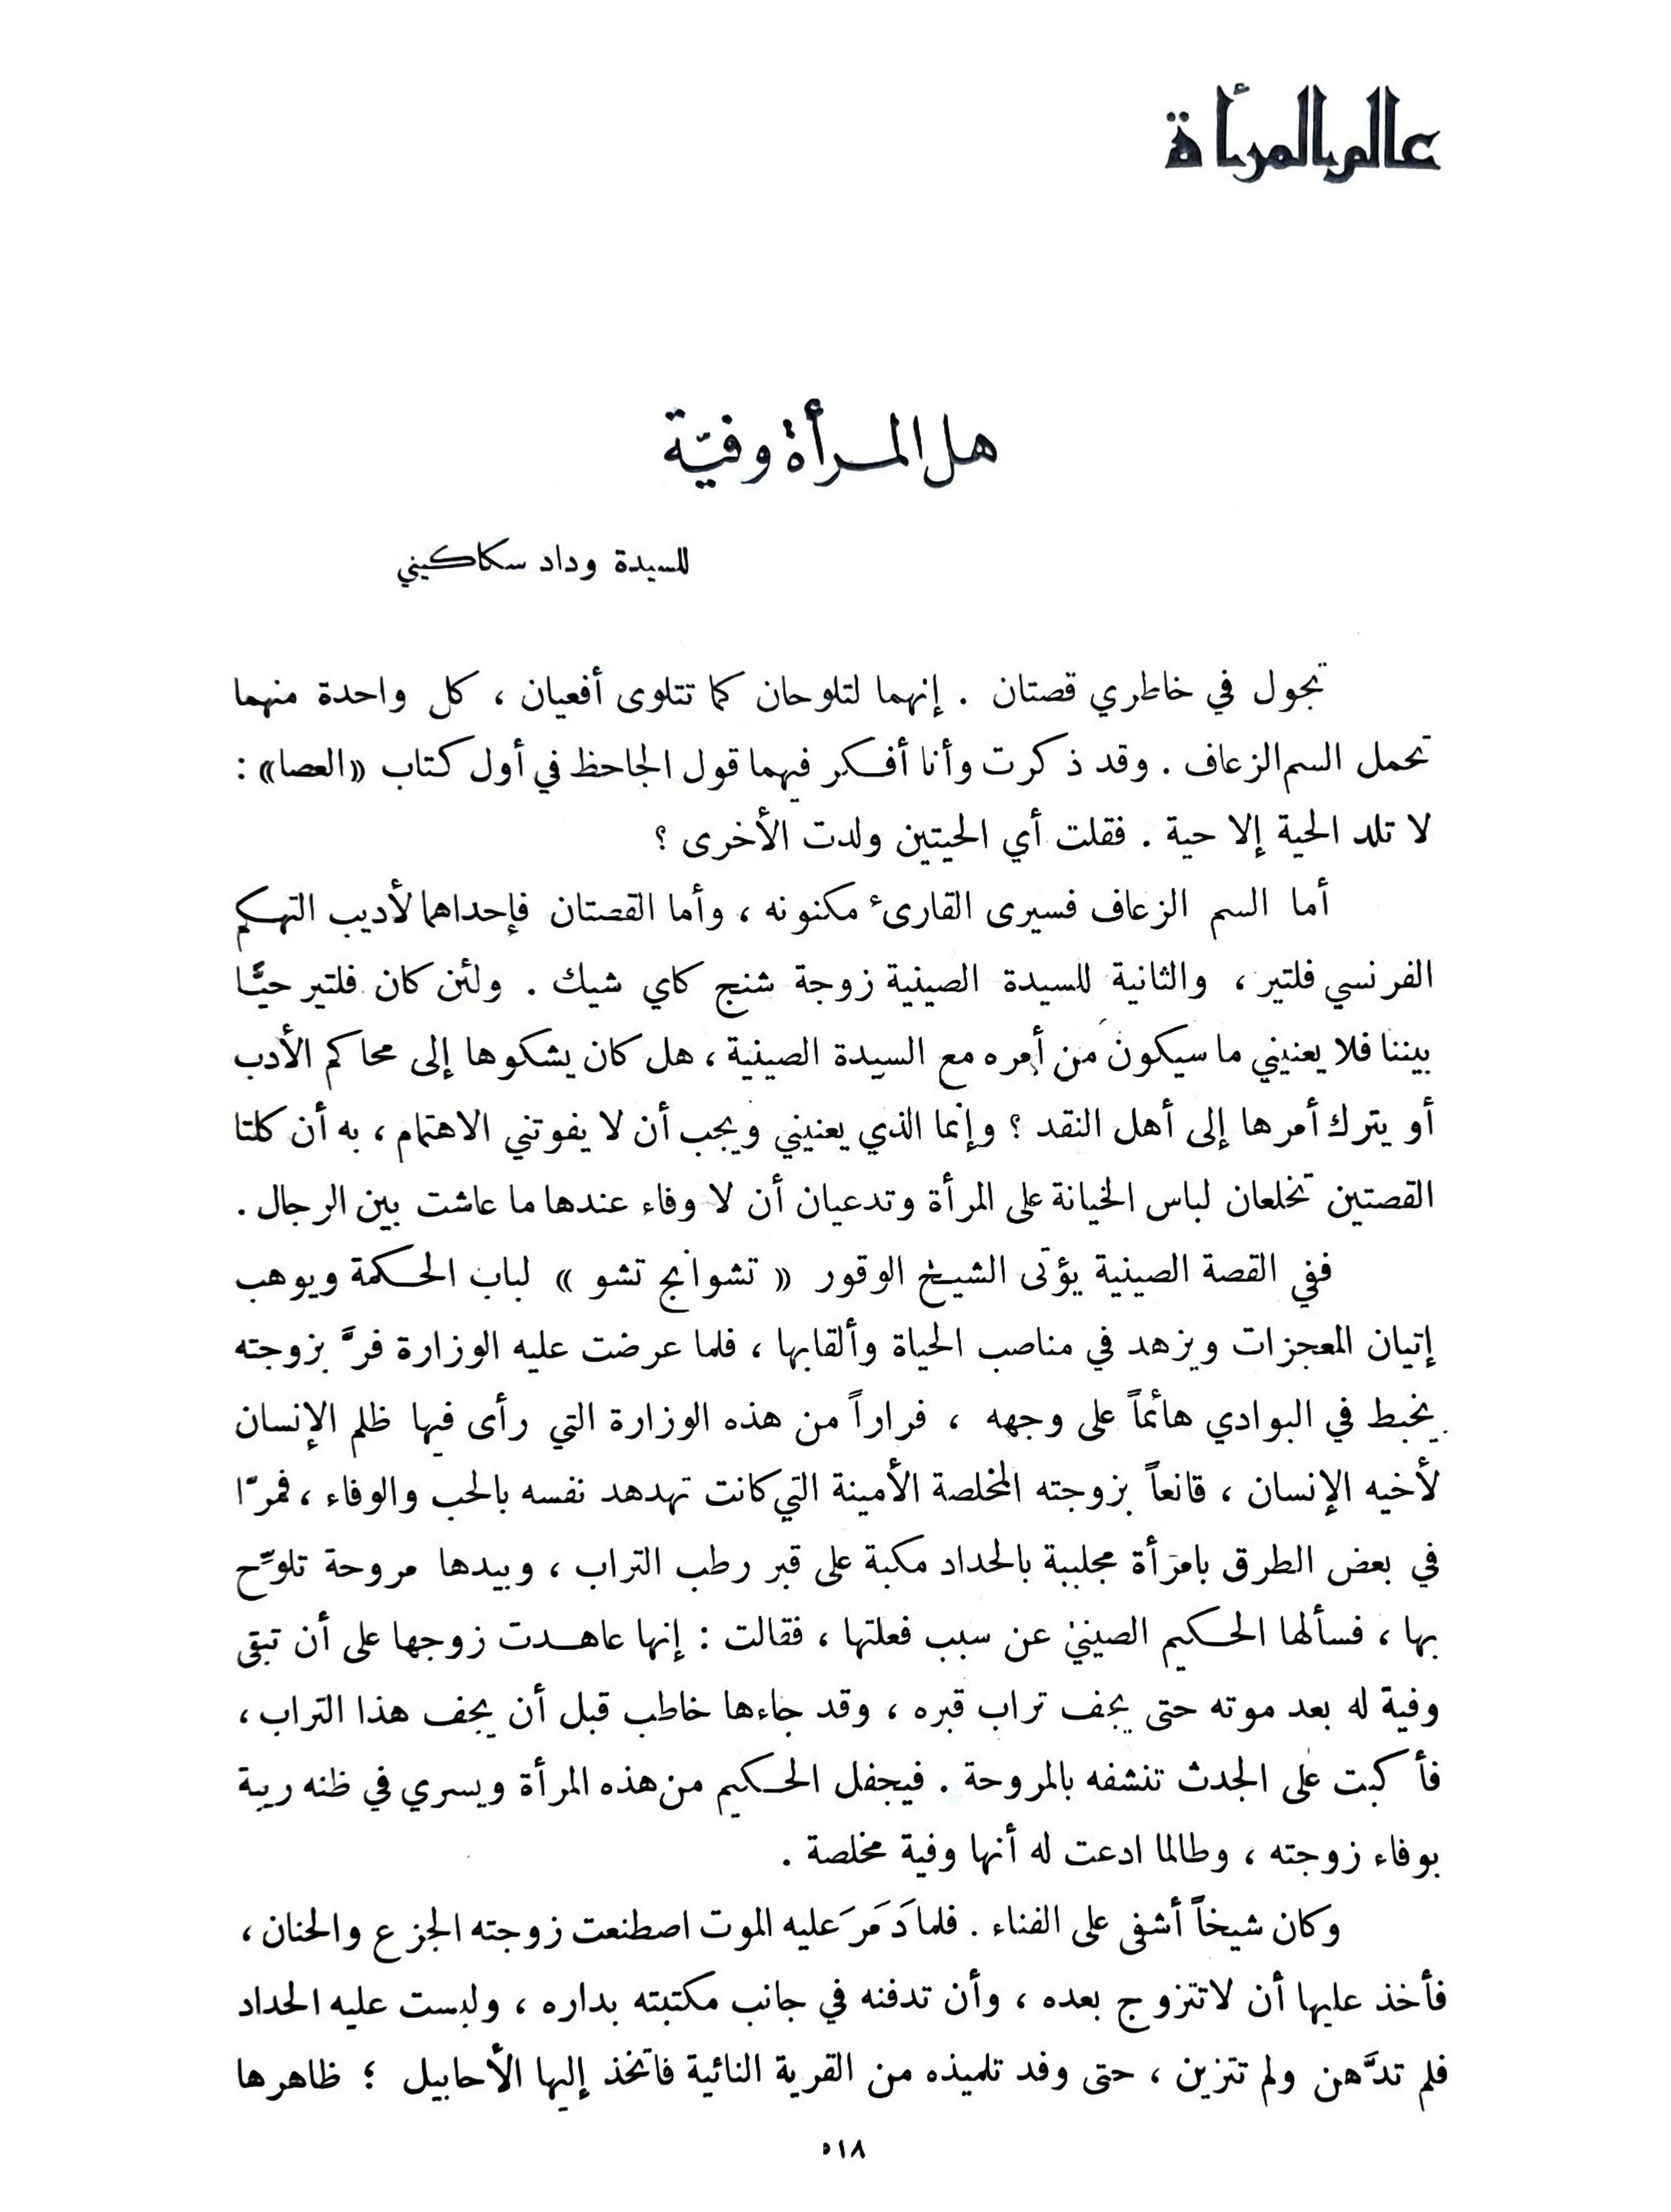 عالم المرأة
هل المرأة وفيّة
للسيدة وداد سكاكيني
تجول في خاطري قصتان . إنهما لتلوحان كما تتلوى أفعيان ، كل واحدة منهما
تحمل السم الزعاف . وقد ذكرت وأنا أفكر فيهما قول الجاحظ في أول كتاب «العصا» :
لا تلد الحية إلا حية . فقلت أي الحيتين ولدت الأخرى ؟
أما السم الزعاف فسيرى القارىء مكنونه ، وأما القصتان فإحداهما لأديب التهكم
الفرنسي فلتير ، والثانية للسيدة الصينية زوجة شنج كاي شيك . ولئن كان فلتير حيًّا
بيننا فلا يعنيني ما سيكون من أمره مع السيدة الصينية ، هل كان يشكوها إلى محاكم الأدب
أو يترك أمرها إلى أهل النقد ؟ وإنما الذي يعنيني ويجب أن لا يفوتني الاهتمام ، به أن كلتا
القصتين تخلعان لباس الخيانة على المرأة وتدعيان أن لا وفاء عندها ما عاشت بين الرجال .
ففي القصة الصينية يؤتى الشيخ الوقور « تشوانج تشو » لباب الحكمة ويوهب
إتيان المعجزات ويزهد في مناصب الحياة وألقابها ، فلما عرضت عليه الوزارة فرَّ بزوجته
يخبط في البوادي هائماً على وجهه ، فراراً من هذه الوزارة التي رأى فيها ظلم الإنسان
لأخيه الإنسان ، قانعاً بزوجته المخلصة الأمينة التي كانت تهدهد نفسه بالحب والوفاء ، فمرّا
في بعض الطرق بامرأة مجلببة بالحداد مكبة على قبر رطب التراب ، وبيدها مروحة تلوّح
بها ، فسألها الحكيم الصيني عن سبب فعلتها ، فقالت : إنها عاهدت زوجها على أن تبقى
وفية له بعد موته حتى يجف تراب قبره ، وقد جاءها خاطب قبل أن يجف هذا التراب ،
فأكبت على الجدث تنشفه بالمروحة . فيجفل الحكيم من هذه المرأة ويسري في ظنه ريبة
بوفاء زوجته ، وطالما ادعت له أنها وفية مخلصة .
وكان شيخاً أشفى على الفناء . فلما دَمَرَ عليه الموت اصطنعت زوجته الجزع والحنان ،
فأخذ عليها أن لا تتزوج بعده ، وأن تدفنه في جانب مكتبته بداره ، ولبست عليه الحداد
فلم تدَّهن ولم تتزين ، حتى وفد تلميذه من القرية النائية فاتخذ إليها الأحابيل ؛ ظاهرها
٥١٨